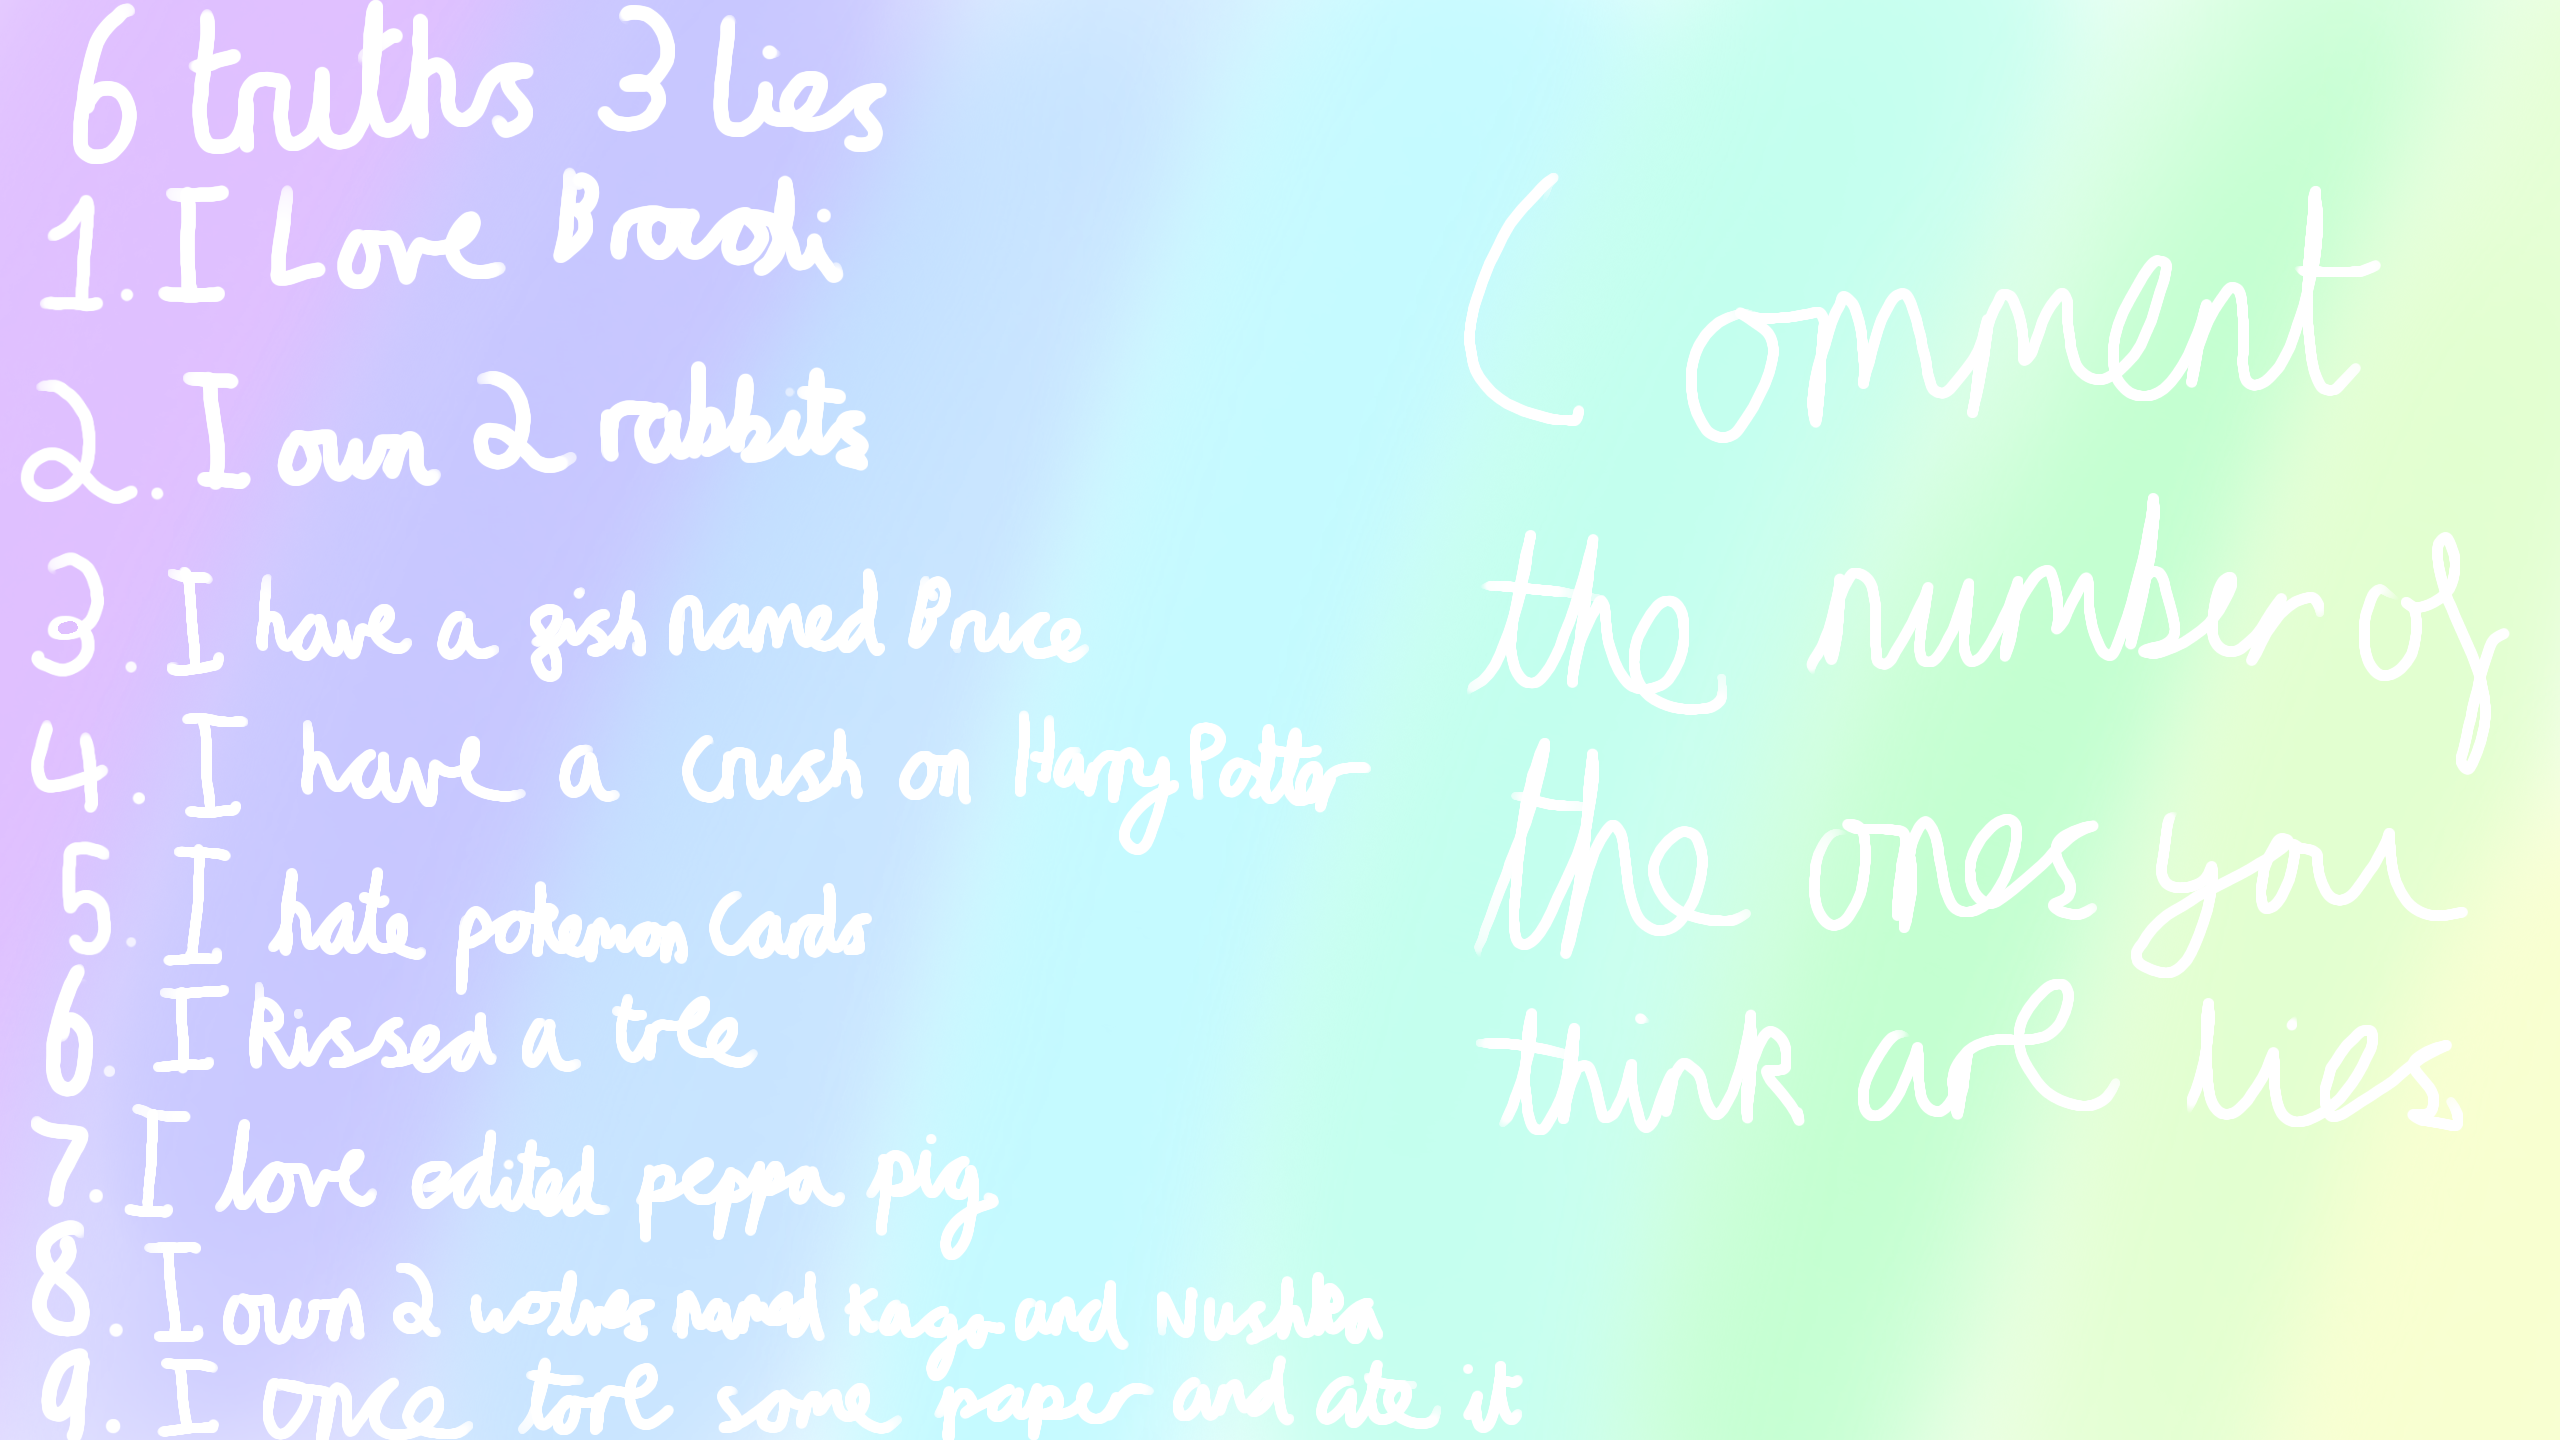 6 truths 3 lies
1. I Love Brocoli
2. I own 2 rabbits
3. I have a fish named Bruce
4. I have a crush on Harry Potter
5. I hate pokemon Cards
6. I kissed a tree
7. I love edited peppa pig
8. I own 2 wolves named Kago and Nushka
9. I once tore some paper and ate it
Comment
the number of
the ones you
think are lies.